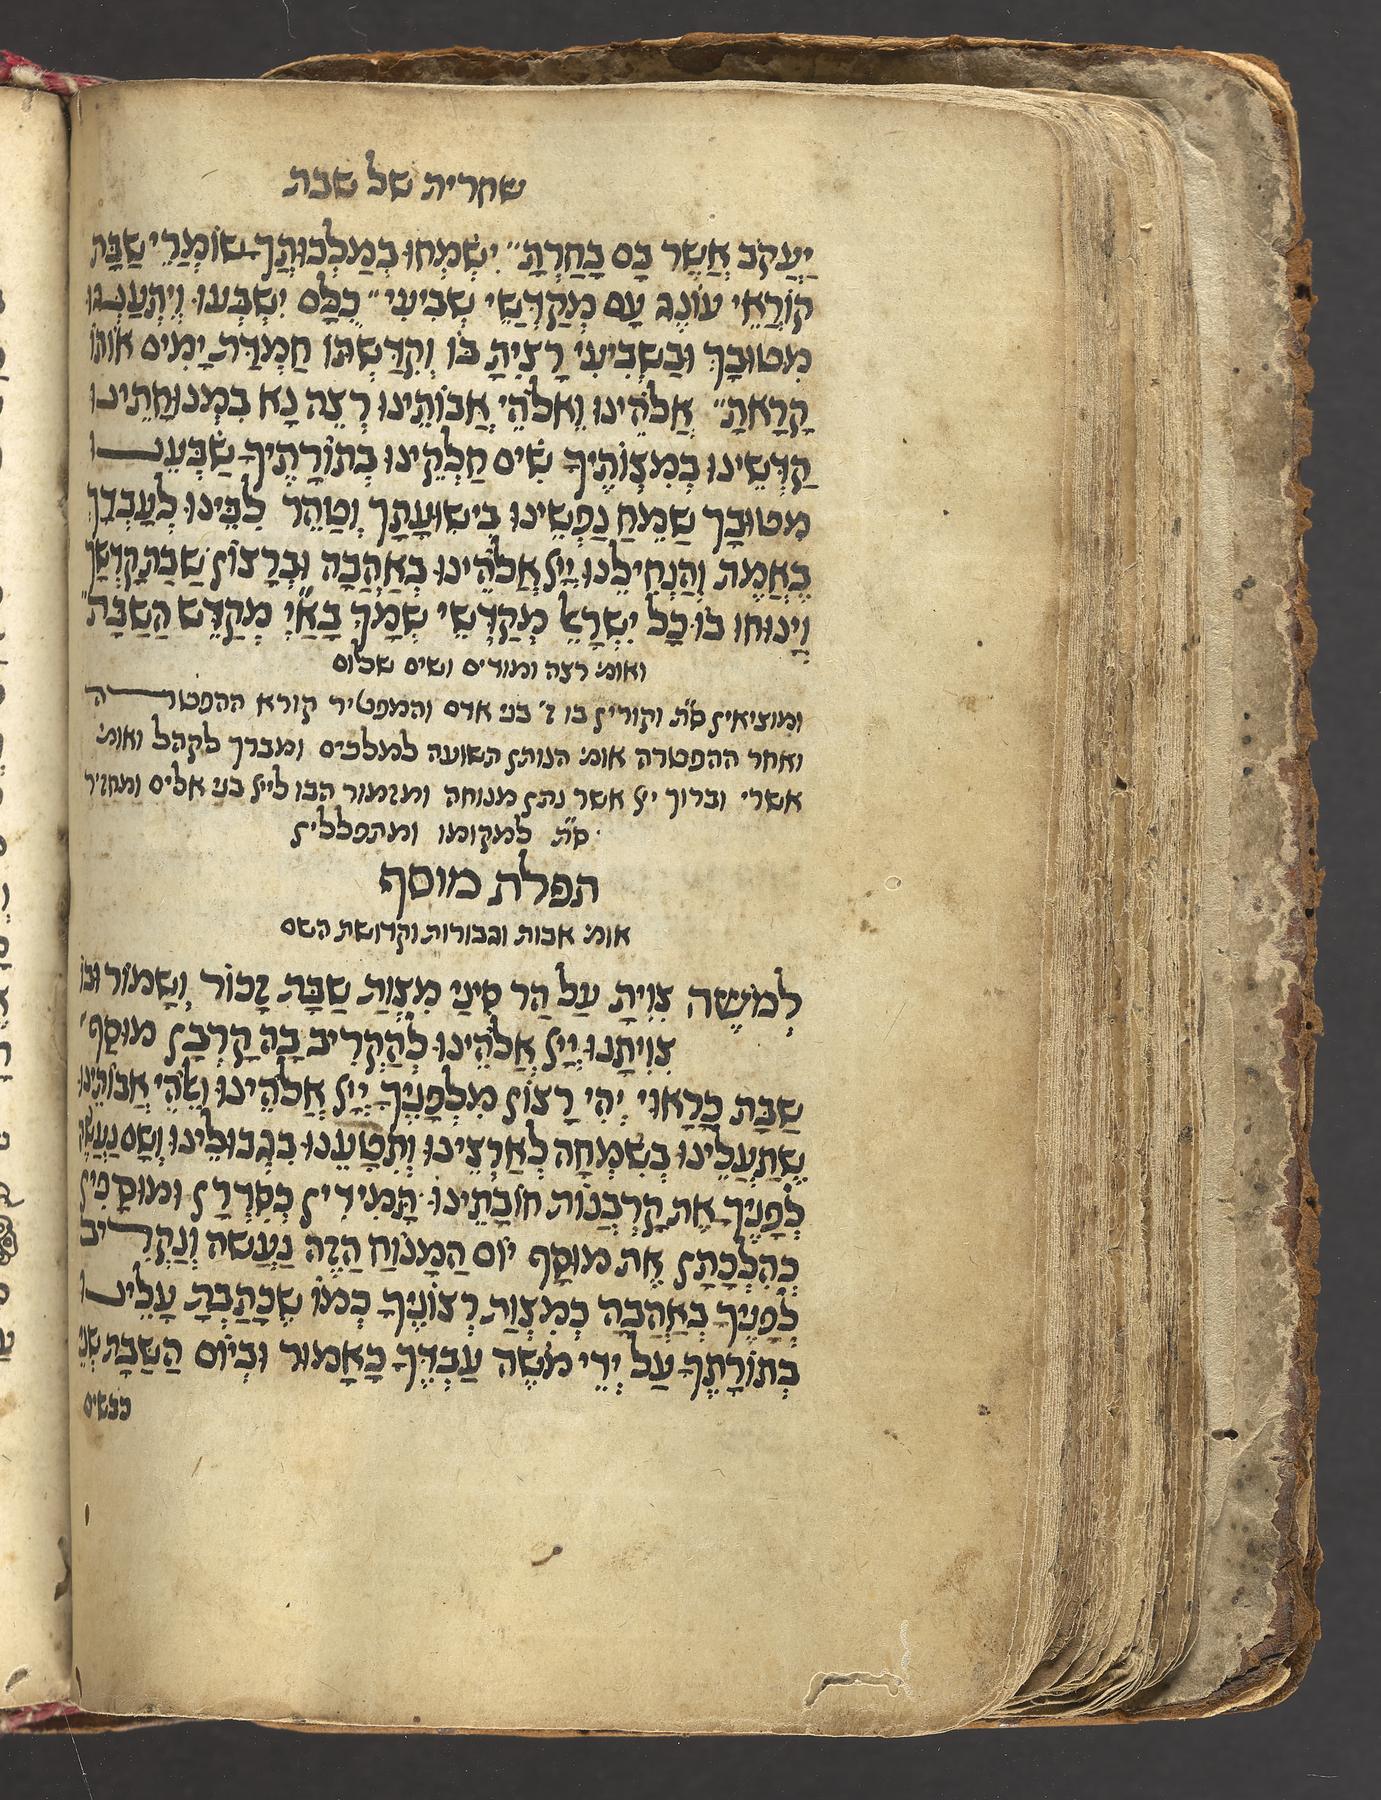 שחרית של שבת
יַעֲקֹב אֲשֶר בָּם בָּחַרְתָּ״ יִשְׂמְחוּ בְמַלְכוּתָךְ שוֹמְרֵי שַבָּת
קוֹרְאֵי עוֹנֶג עָם מְקַדְּשֵי שְבִיעִי״ כֻּלָּם יִשְבְּעוּ וְיִתְעַנְּגוּ
מִטוּבָךְ וּבַשְבִיעִי רָצִיתָ בּוֹ וְקִדַּשְתּוֹ חֶמְדַּת יָמִים אוֹתוֹ
קָרָאתָ״ אֱלֹהֵינוּ וֵאלֹהֵי אֲבוֹתֵינוּ רְצֵה נָא בִמְנוּחָתֵינוּ
קַדְּשֵינוּ בְּמִצְוֹתֶיךָ שִׂים חֶלְקֵינוּ בְּתוֹרָתֶיךָ שַׂבְּעֵנוּ
מִטוּבָךְ שַׂמֵחַ נַפְשֵינוּ בִישוּעָתָךְ וְטַהֵר לִבֵּינוּ לְעָבְדְךָ
בֶּאֱמֶת וְהַנְחִילֵנוּ יְיָ אֱלֹהֵינוּ בְּאַהֲבָה וּבְרָצוֹן שַבַּת קָדְשָךְ
וְיָנוּחוּ בוֹ כָּל יִשְרָאֵל מְקַדְּשֵי שְמָךְ בָּאַ״יְ מְקַדֵּש הַשַבָּת״
ואומ׳ רצה ומודים ושים שלום
ומוציאין ס״ת וקורין בו ז׳ בני אדם והמפטיר קורא ההפטרה
ואחר ההפטרה אומ׳ הנותן תשועה למלכים ומברך לקהל ואומ׳
אשרי וברוך ייי אשר נתן מנוחה ומזמור הבו לייי בני אלים ומחזיר
ס״ת למקומו ומתפללין
תפלת מוסף
אומ׳ אבות וגבורות וקדושת השם
לְמֹשֶה צִוִּיתָ עַל הַר סִינַי מִצְוַת שַבָּת זָכוֹר וְשָמוֹר וּבוֹ
צִוִּיתָנוּ יְיָ אֱלֹהֵינוּ לְהַקְרִיב בָּהּ קָרְבַּן מוּסַף
שַבָּת כָּרָאוּי יְהִי רָצוֹן מִלְּפָנֶיךָ יְיָ אֱלֹהֵינוּ וֵאלֹהֵי אֲבוֹתֵינוּ
שֶתַּעֲלֵינוּ בְשִׂמְחָה לְאַרְצֵינוּ וְתִטָּעֵנוּ בִּגְבוּלֵינוּ וְשָם נַעֲשֶׂה
לְפָנֶיךָ אֶת קָרְבְּנוֹת חוֹבָתֵינוּ תְּמִידִין כְּסִדְרָן וּמוּסָפִין
כְּהִלְכָתָן אֶת מוּסַף יוֹם הַמָּנוֹחַ הַזֶּה נַעֲשֶׂה וְנַקְרִיב
לְפָנֶיךָ בְּאַהֲבָה כְּמִצְוַת רְצוֹנֶיךָ כְּמוֹ שֶכָּתַבְתָּ עָלֵינוּ
בְּתוֹרָתֶךָ עַל יְדֵי מֹשֶה עַבְדֶּךָ כָּאָמוּר וּבְיוֹם הַשַבָּת שְנֵי
כבשים